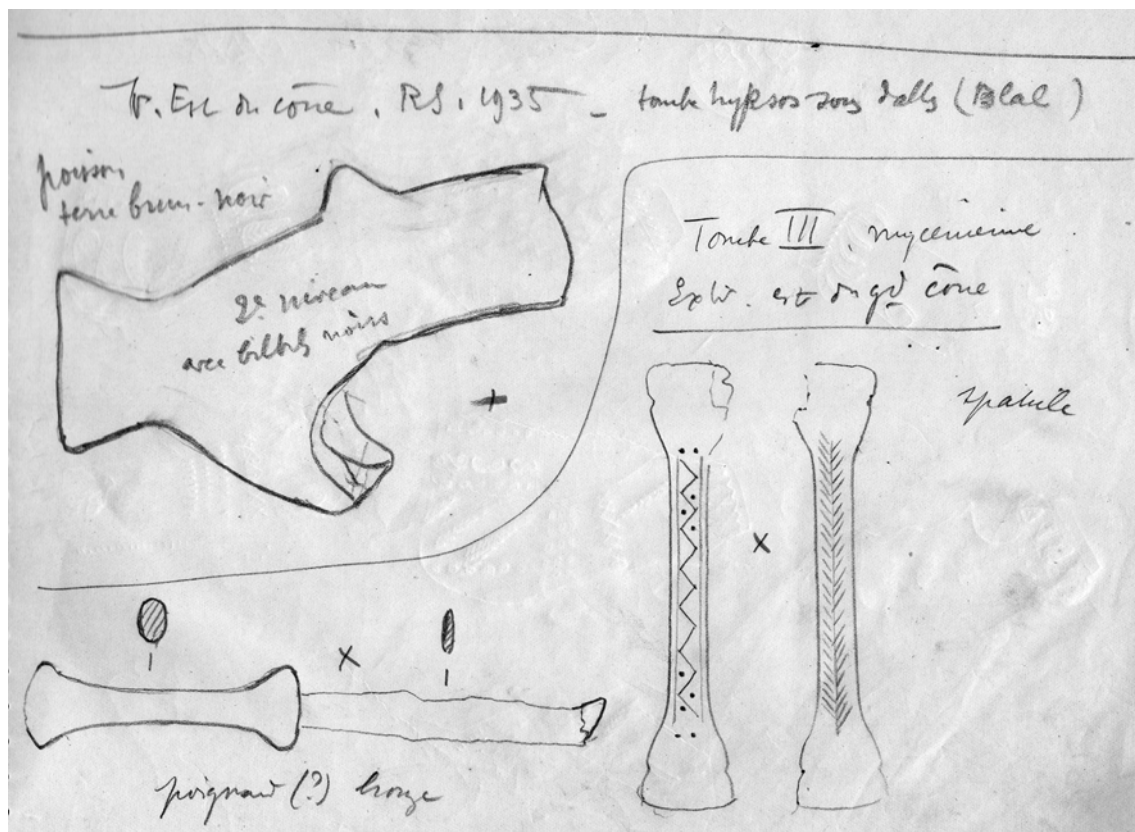 Tr. Est du cône. RS. 1935 - tombe hyksos sous dalles (Blal )
poisson
terre brun-noir
2e niveau
avec bilbils noirs
Tombe III. mycénienne
Extr. est du gd cône
spatule
poignard (?) bronze